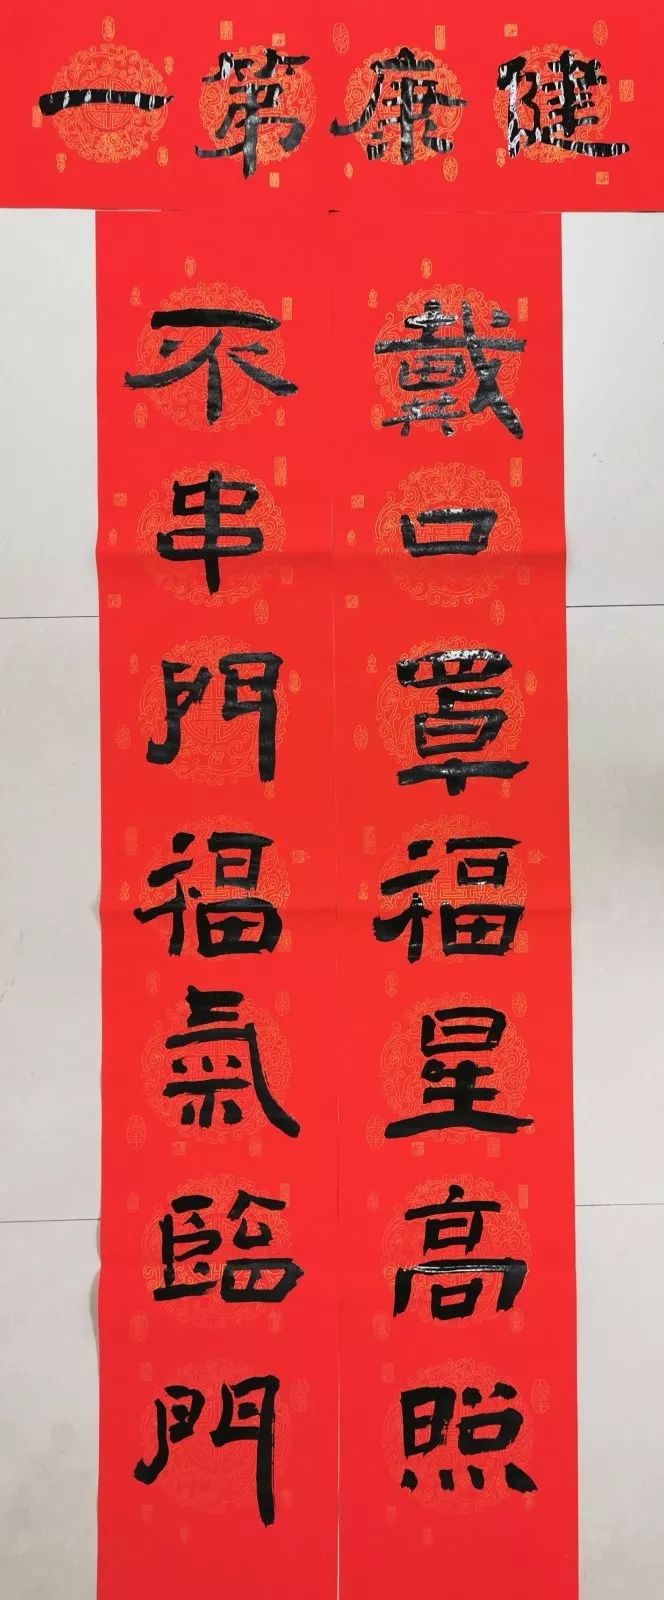 健康第一
戴口罩福星高照
不串門福氣臨門